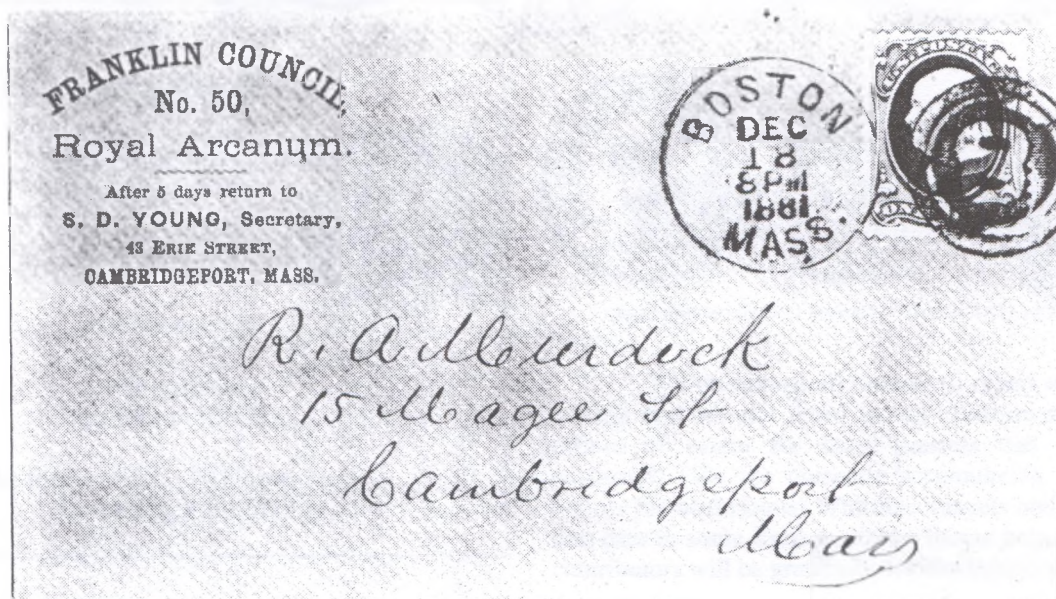 FRANKLIN COUNCIL,
No. 50,
Royal Arcanum.
After 5 days return to
S. D. YOUNG, Secretary,
43 ERIE STREET,
CAMBRIDGEPORT, MASS.
BOSTON
DEC
18
8 PM
1881
MASS.
R. A Murdock
15 Magee St
Cambridgeport
Mass